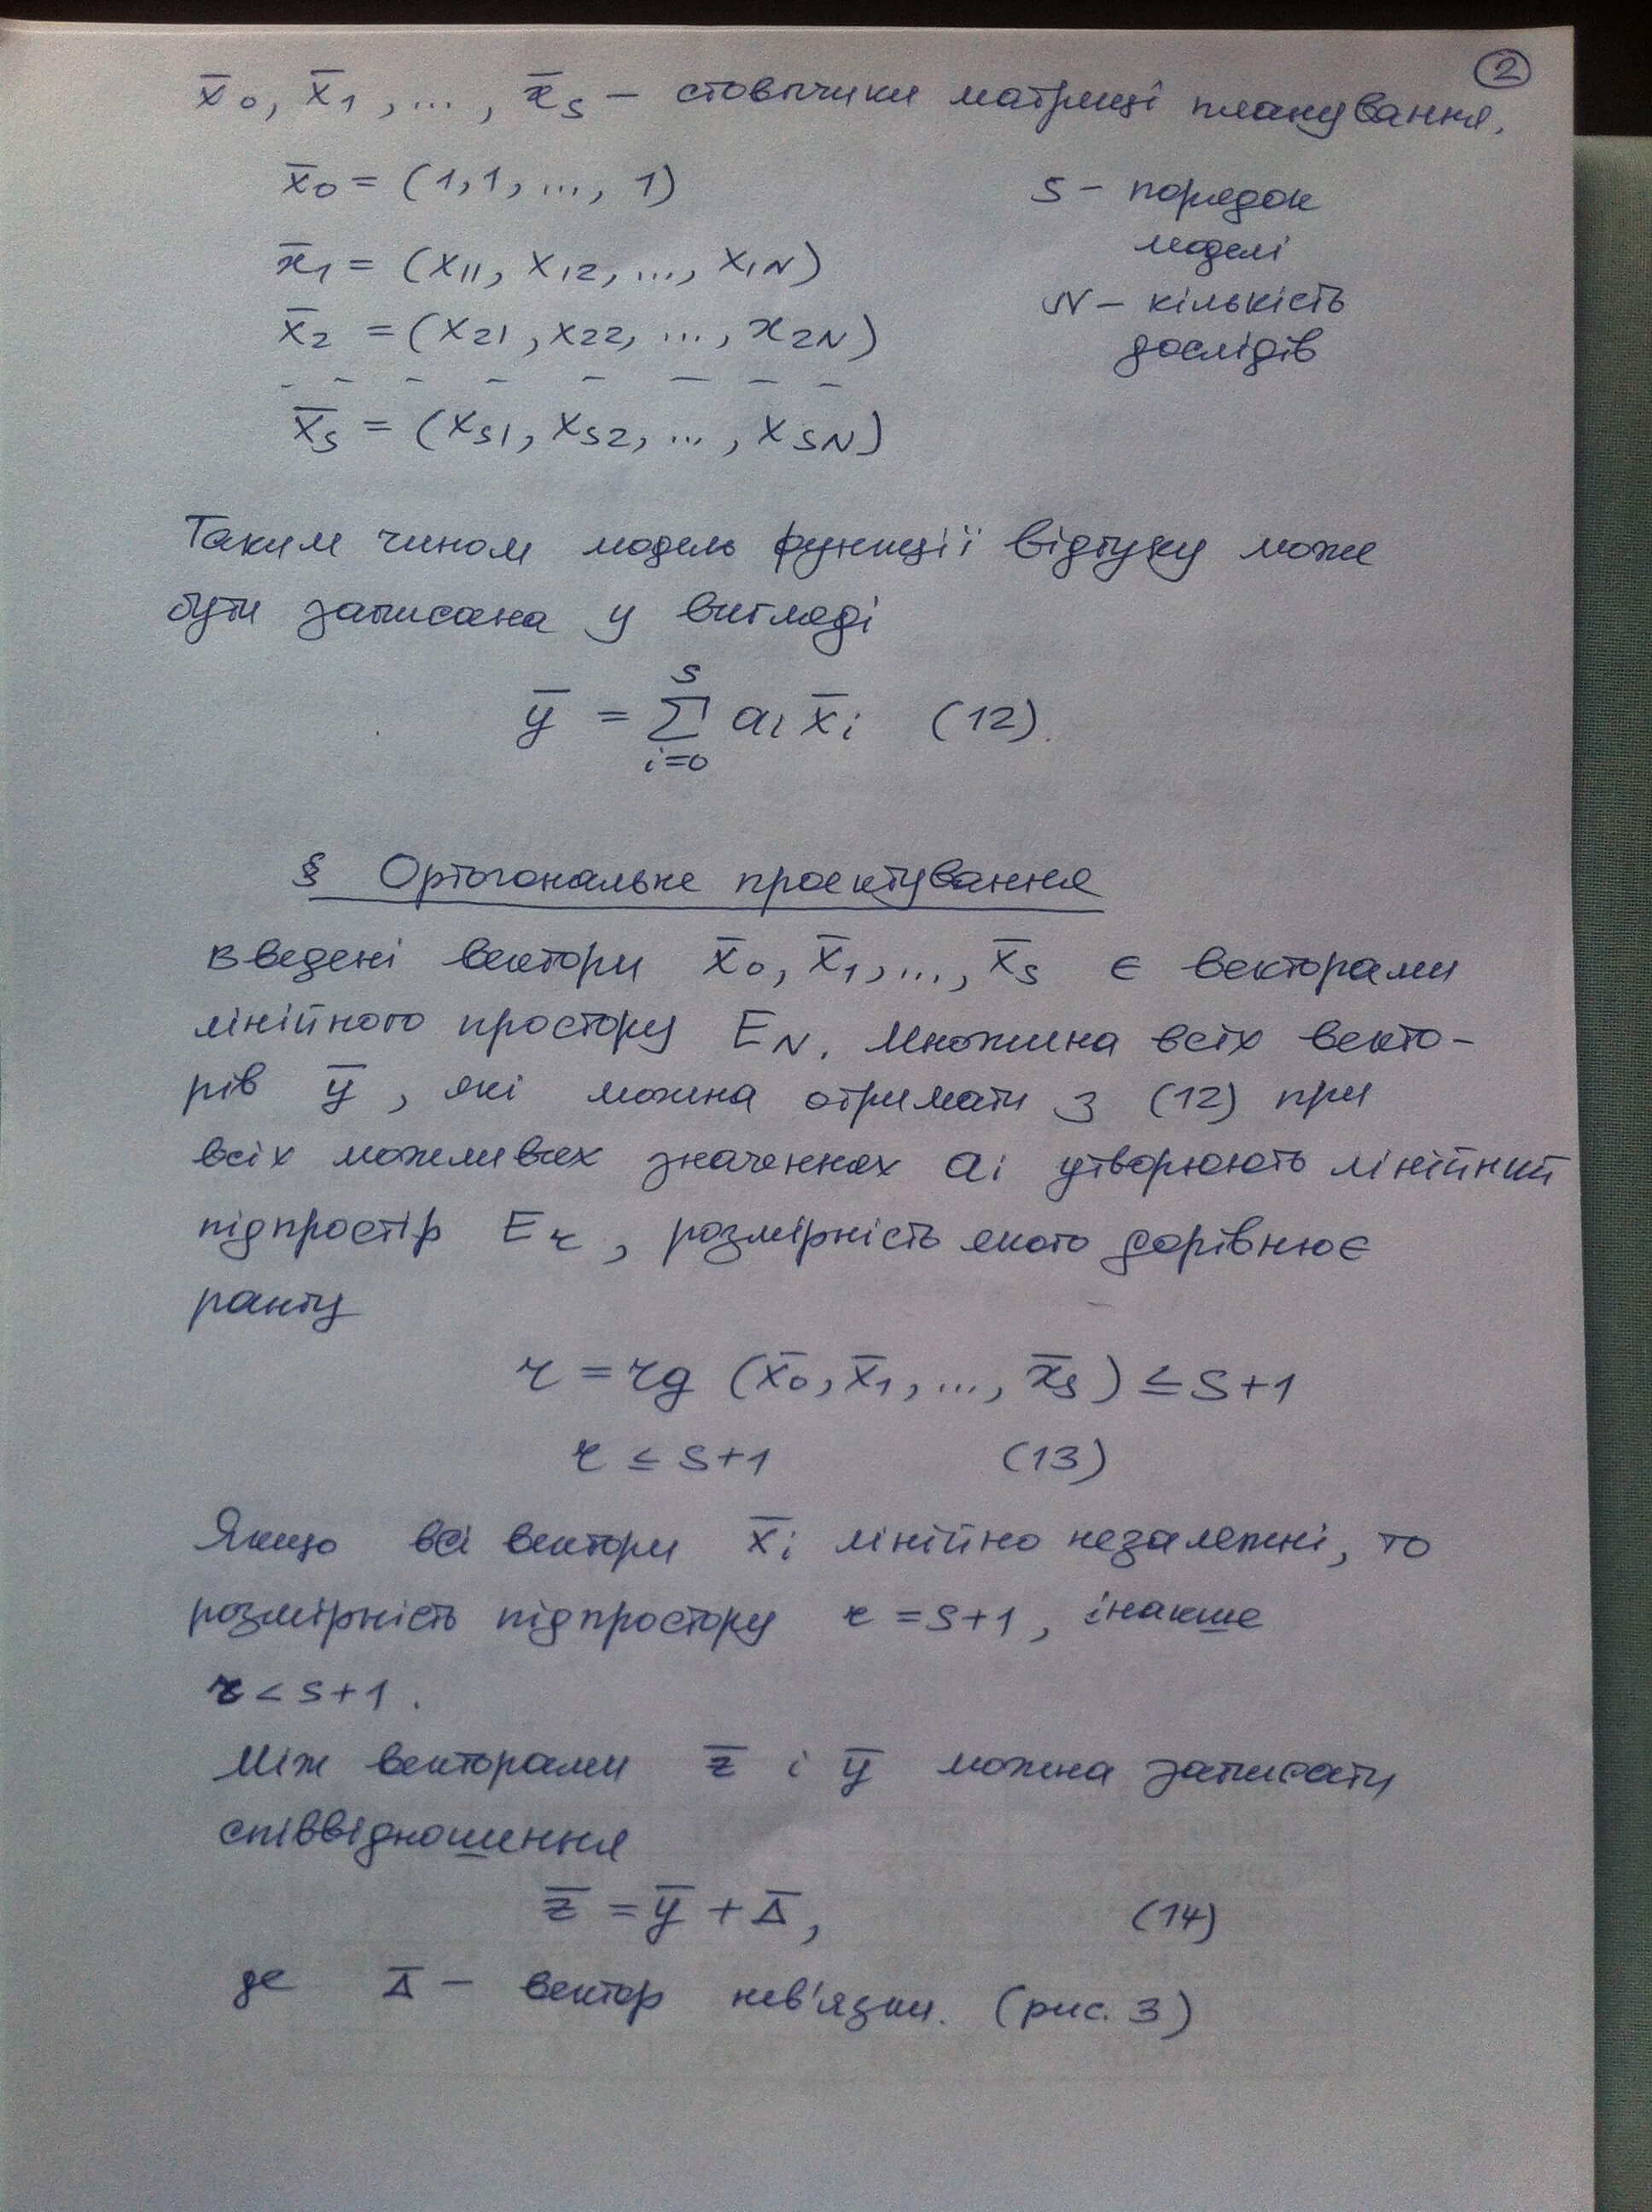 ②
x̄₀, x̄₁, ..., x̄ₛ — стовпчики матриці планування.
x̄₀ = (1, 1, ..., 1)
S — порядок
моделі
x̄₁ = (x₁₁, x₁₂, ..., x₁N)
N — кількість
x̄₂ = (x₂₁, x₂₂, ..., x₂N)
дослідів
- - - - - - - -
x̄ₛ = (xS1, xS2, ..., xSN)
Таким чином модель функції відгуку може
бути записана у вигляді
ȳ = ∑ᵢ₌₀ˢ aᵢ x̄ᵢ (12).
§ Ортогональне проектування
Введені вектори x̄₀, x̄₁, ..., x̄ₛ є векторами
лінійного простору EN. Множина всіх векто-
рів ȳ, які можна отримати з (12) при
всіх можливих значеннях aᵢ утворюють лінійний
підпростір Er, розмірність якого дорівнює
рангу
r = rg (x̄₀, x̄₁, ..., x̄ₛ) ≤ S+1
r ≤ S+1 (13)
Якщо всі вектори x̄ᵢ лінійно незалежні, то
розмірність підпростору r = S+1, інакше
r < S+1.
Між векторами z̄ і ȳ можна записати
співвідношення
z̄ = ȳ + Δ̄, (14)
де Δ̄ — вектор нев'язки. (рис. 3)